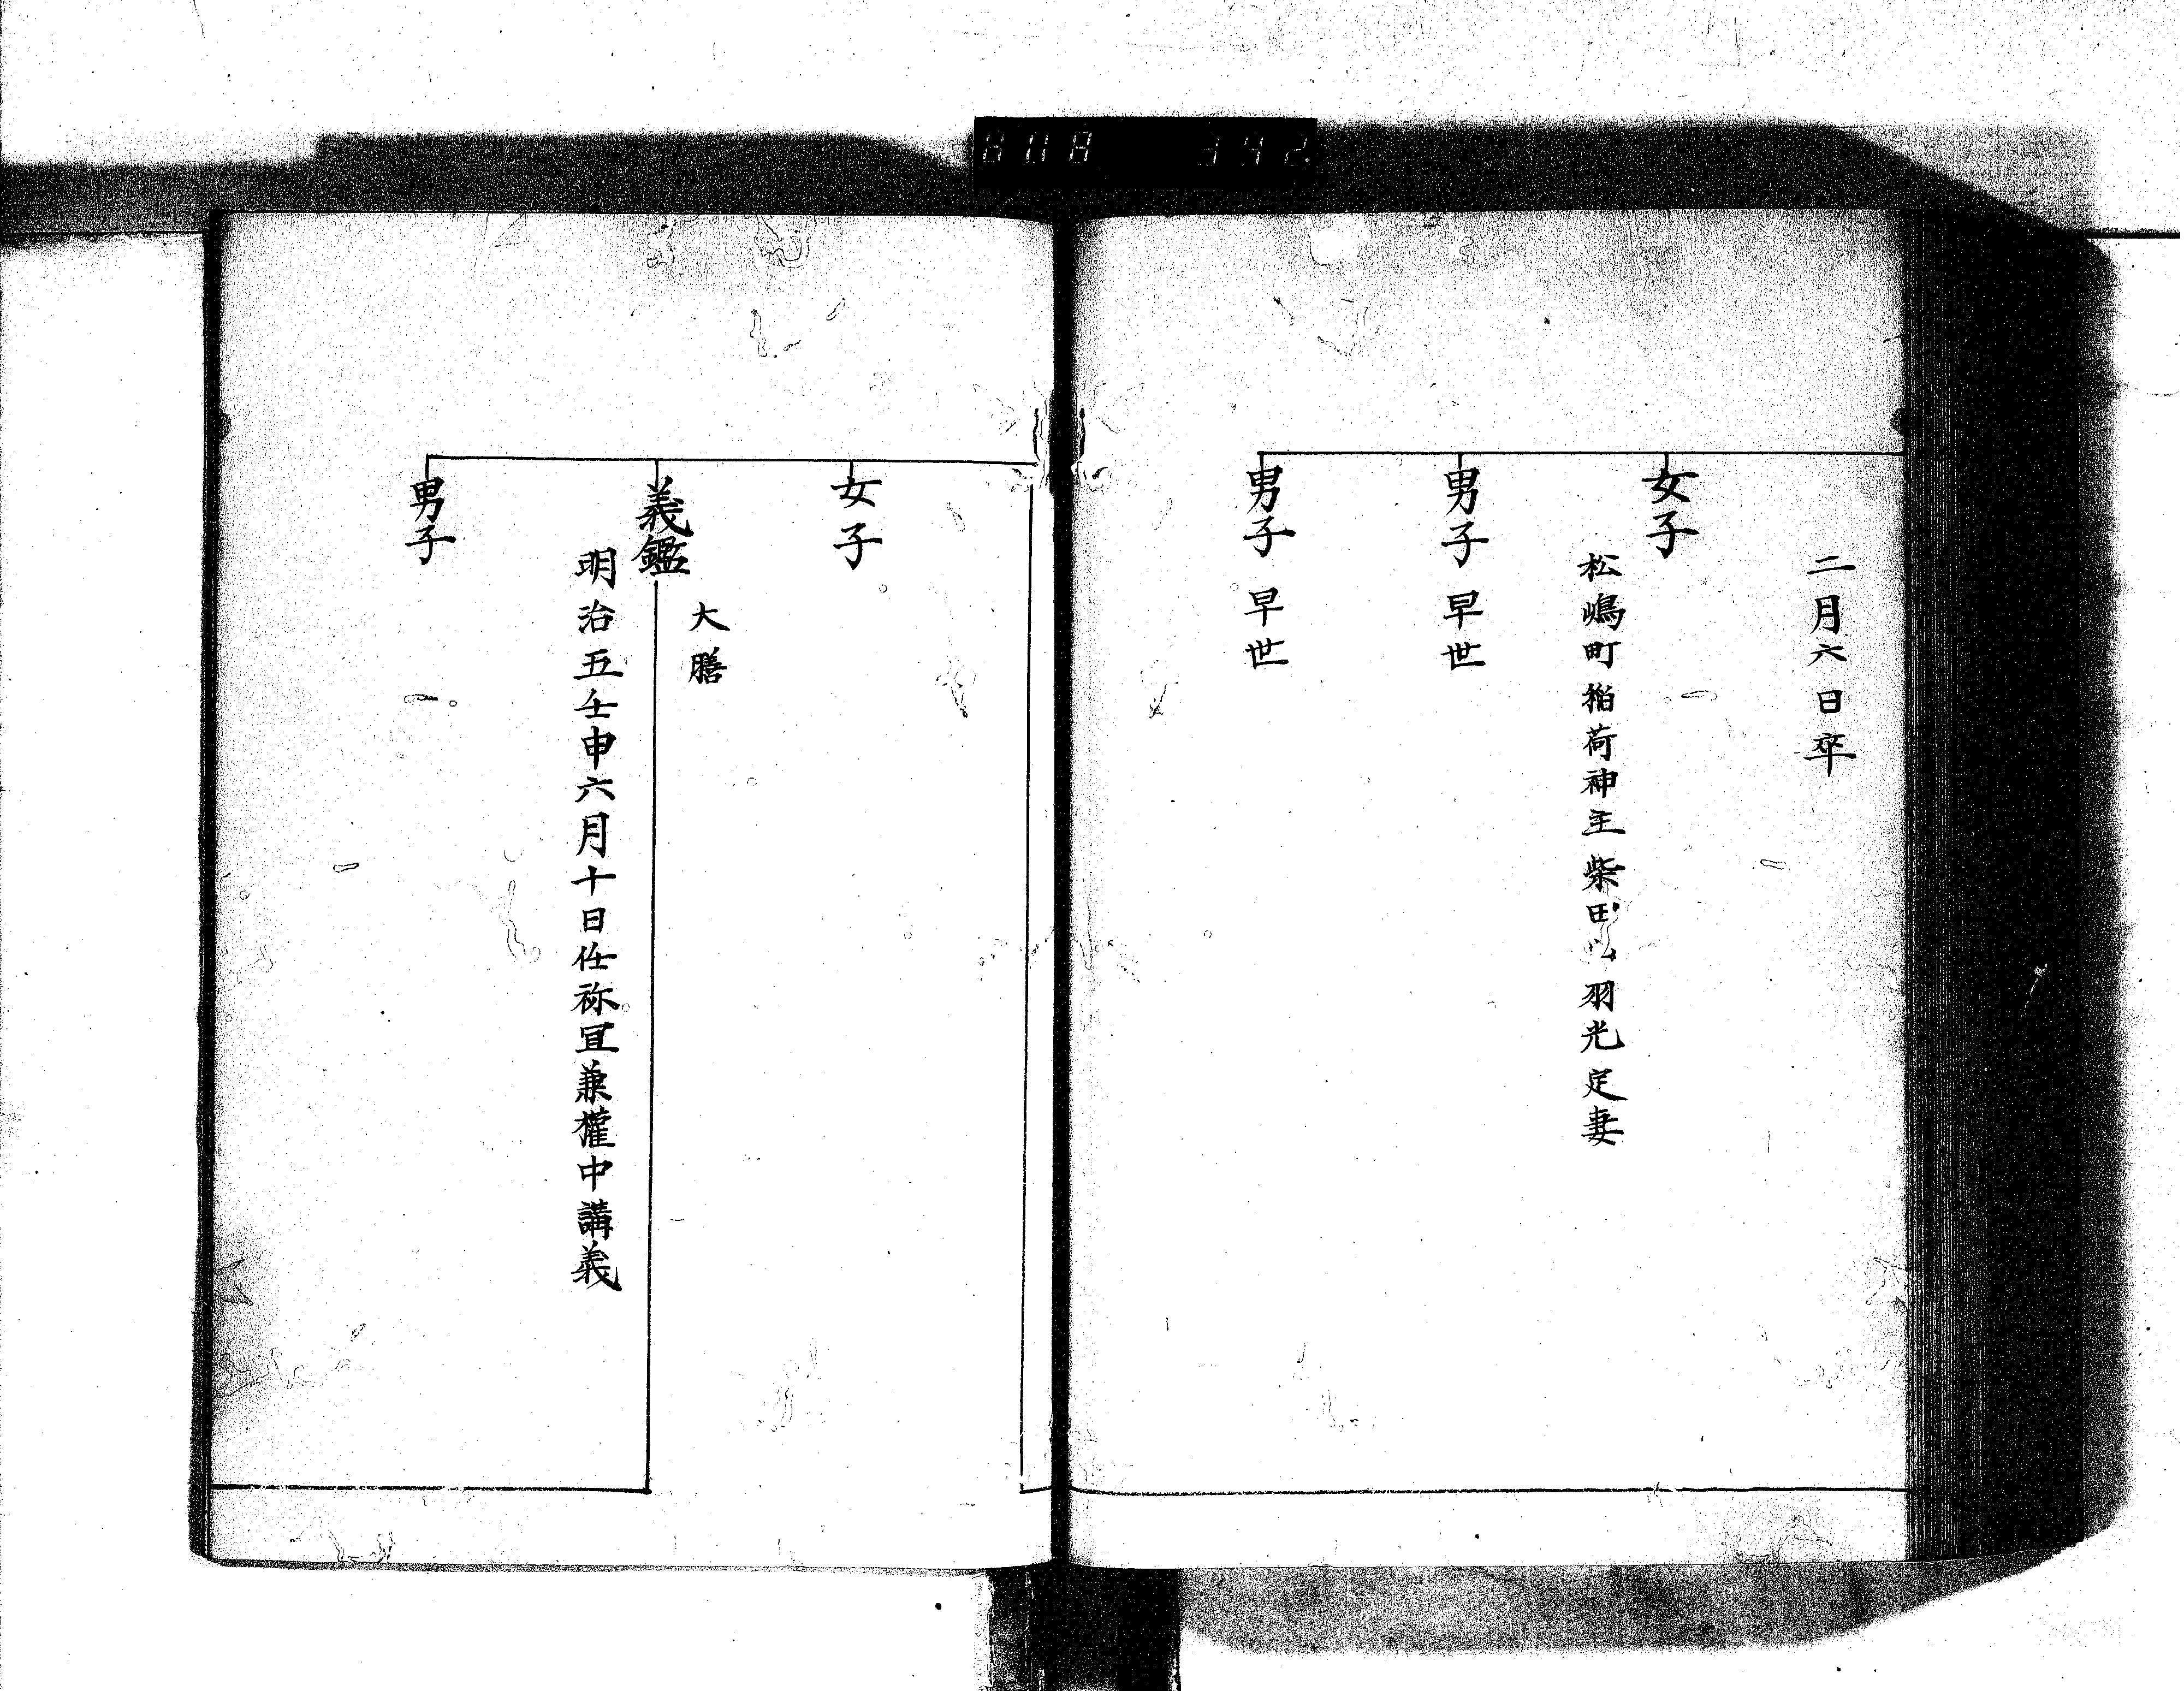 8118 342
二月六日卒
女子
松嶋町稲荷神主柴田 羽光定妻
男子 早世
男子 早世
女子
大膳
義鑑
明治五壬申六月十日任祢宜兼権中講義
男子